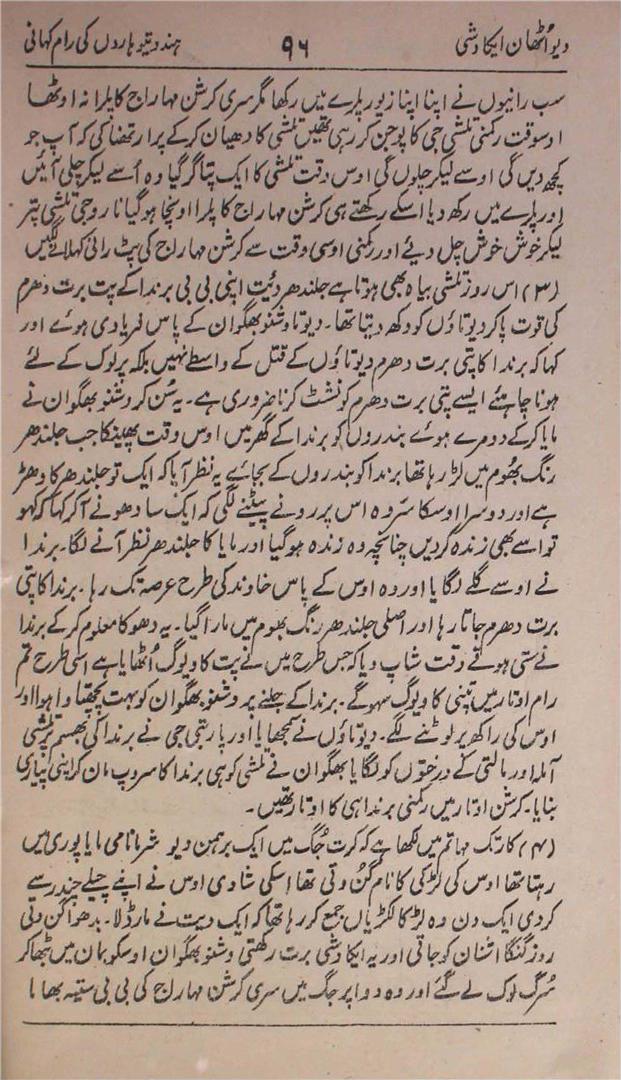 دیو اُٹھان ایکادشی ۹۶ ہندو تیوہاروں کی رام کہانی
سب رانیوں نے اپنا اپنا زیور پلرے میں رکھا مگر سری کرشن مہاراج کا پلرا نہ اوٹھا
اوسوقت رکمنی تلشی جی کا پوجن کر رہی تھیں تلشی کا دھیان کرکے پرارتھنا کی کہ آپ جو
کچھ دیں گی اوسے لیکر چلوں گی اوس وقت تلشی کا ایک پتا گر گیا وہ اُسے لیکر چلی آئیں
اور پلرے میں رکھ دیا اسکے رکھتے ہی کرشن مہاراج کا پلرا اونچا ہوگیا نارد جی تلشی پتر
لیکر خوش خوش چل دیئے اور رکمنی اوسی وقت سے کرشن مہاراج کی پٹ رانی کہلانے لگیں
(۳) اس روز تلشی بیاہ بھی ہوتا ہے جلندھر دئیت اپنی بی بی برندا کے پت برت دھرم
کی قوت پاکر دیوتاؤں کو دکھ دیتا تھا۔ دیوتا وشنو بھگوان کے پاس فریادی ہوئے اور
کہا کہ برندا کا پتی برت دھرم دیوتاؤں کے قتل کے واسطے نہیں بلکہ پرلوک کے لئے
ہونا چاہئے ایسے پتی برت دھرم کو نشٹ کرنا ضروری ہے۔ یہ سُن کر وشنو بھگوان نے
مایا کرکے دو مرے ہوئے بندروں کو برندا کے گھر میں اوس وقت پھینکا جب جلندھر
رنگ بھوم میں لڑ رہا تھا برندا کو بندروں کے بجائے یہ نظر آیا کہ ایک تو جلندھر کا دھڑ
ہے اور دوسرا اوسکا سر وہ اس پر رونے پیٹنے لگی کہ ایک سادھو نے آکر کہا کہ کہو
تو اسے بھی زندہ کردیں چنانچہ وہ زندہ ہوگیا اور مایا کا جلندھر نظر آنے لگا۔ برندا
نے اوسے گلے لگایا اور وہ اوس کے پاس خاوند کی طرح عرصہ تک رہا۔ برندا کا پتی
برت دھرم جاتا رہا اور اصلی جلندھر رنگ بھوم میں مارا گیا۔ یہ دھوکا معلوم کرکے برندا
نے ستی ہوتے وقت شاپ دیا کہ جس طرح میں نے پت کا ویوگ اُٹھایا ہے اسی طرح تم
رام اوتار میں تپنی کا ویوگ سہوگے۔ برندا کے جلنے پر وشنو بھگوان کو بہت پچھتاوا ہوا اور
اوس کی راکھ پر لوٹنے لگے۔ دیوتاؤں نے سمجھایا اور پاربتی جی نے برندا کی بھسم پر تلشی
آملہ اور مالتی کے درختوں کو لگایا بھگوان نے تلشی کو ہی برندا کا سروپ مان کر اپنی پیاری
بنایا۔ کرشن اوتار میں رکمنی برندا ہی کا اوتار تھیں۔
(۴) کارتک مہاتم میں لکھا ہے کہ کرت جُگ میں ایک برہمن دیو شرما نامی مایا پوری میں
رہتا تھا اوس کی لڑکی کا نام گُن وتی تھا اسکی شادی اوس نے اپنے چیلے چندر سے
کردی ایک دن وہ لڑکا لکڑیاں جمع کر رہا تھا کہ ایک دیت نے مار ڈالا۔ بدھوا گن وتی
روز گنگا اشنان کو جاتی اور یہ ایکادشی برت رکھتی وشنو بھگوان اوسکو بمان میں بٹھا کر
سُرگ لوک لے گئے اور وہ دواپر جگ میں سری کرشن مہاراج کی بی بی ستیہ بھاما